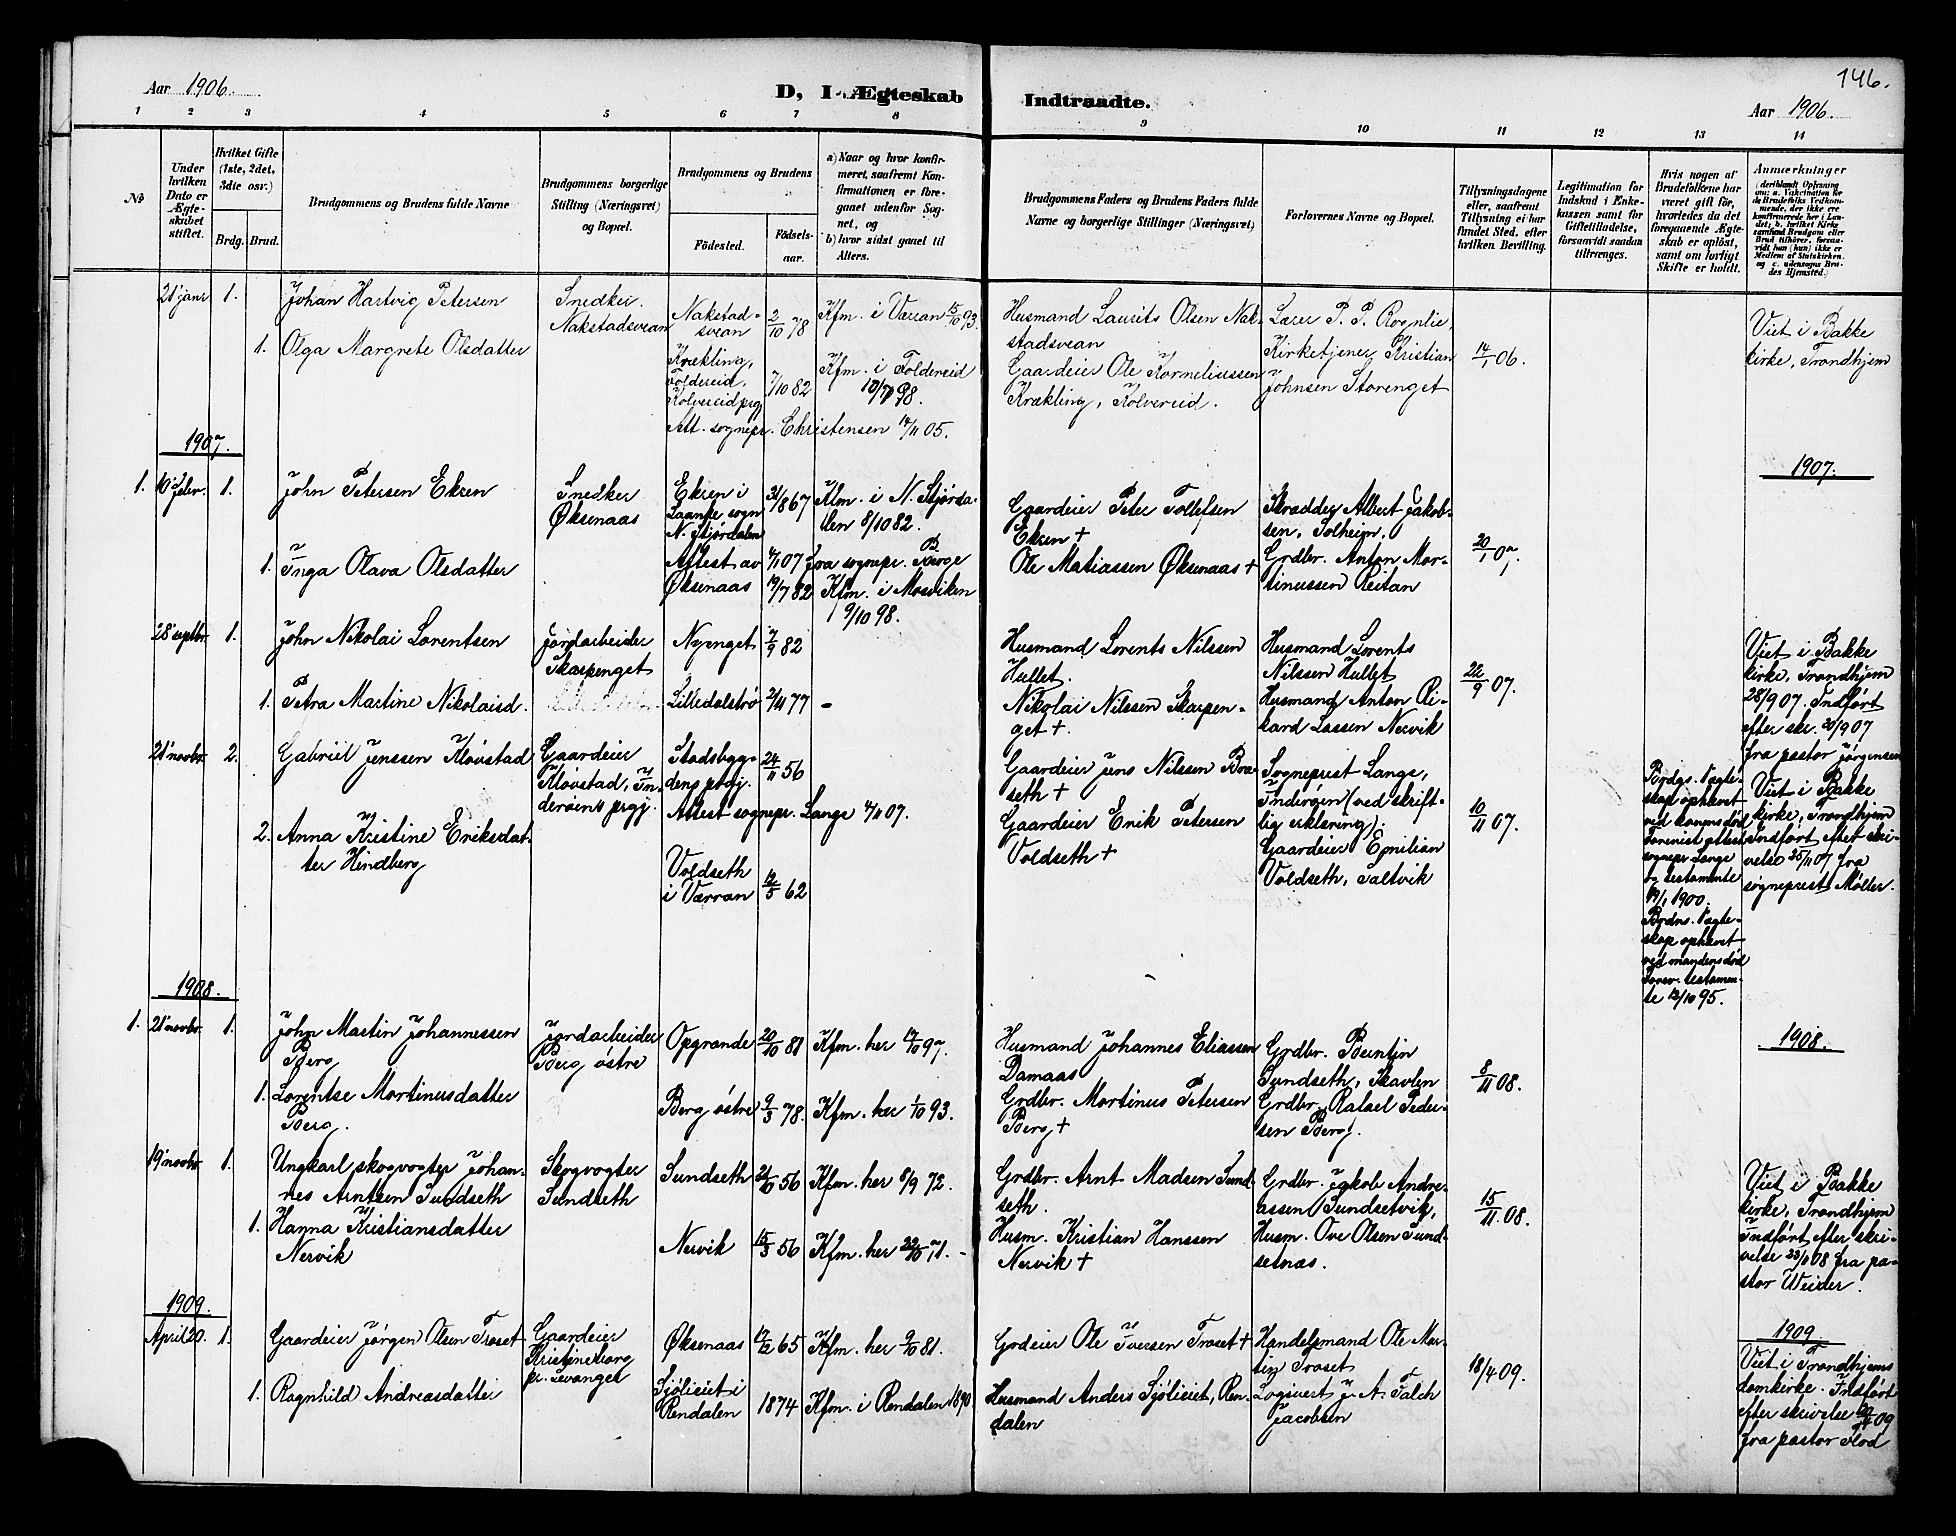 146.
Aar 1906.
D, I Ægteskab Indtraadte.
Aar 1906.
1 2 3 4 5 6 7 8 9 10 11 12 13 14
No
Under hvilken Dato er Ægteskabet stiftet.
Hvilket Gifte (1ste, 2det, 3die osv.)
Brdg. Brud.
Brudgommens og Brudens fulde Navne
Brudgommens borgerlige Stilling (Næringsvei) og Bopæl.
Brudgommens og Brudens
Fødested.
Fødselsaar.
a) Naar og hvor konfirmeret, saafremt Konfirmationen er foregaaet udenfor Sognet, og
b) hvor sidst gaaet til Alters.
Brudgommens Faders og Brudens Faders fulde Navne og borgerlige Stillinger (Næringsvei)
Forlovernes Navne og Bopæl.
Tillysningsdagene eller, saafremt Tillysning ei har fundet Sted, efter hvilken Bevilling.
Legitimation for Indskud i Enkekassen samt for Giftetilladelse, forsaavidt saadan tiltrænges.
Hvis nogen af Brudefolkene har været gift før, hvorledes da det foregaaende Ægteskab er opløst, samt om lovligt Skifte er holdt.
Anmærkninger
(deriblandt Oplysning om: a. Vaccination for de Brudefolks Vedkommende, der ikke ere konfirmerede her i Landet; b. hvilket Kirkesamfund Brudgom eller Brud tilhører, forsaavidt han (hun) ikke er Medlem af Statskirken, og c. udensogns Brudes Hjemsted.)
21 janr 1. Johan Hartvig Petersen
Snedker. Nakstadsvean
Nakstadsvean 2/10 78
Kfm. i Værran 15/10 93.
Husmand Laurits Olsen Nakstadsvean
Lærer P. P. Rognlie.
14/1 06.
Viet i Bakke kirke, Trondhjem
1. Olga Margrete Olsdatter
Krækling, Foldereid, Kolvereid prgj. 7/10 82
Kfm. i Foldereid 10/7 98.
Gaardeier Ole Korneliussen Krækling, Kolvereid.
Kirketjener Kristian Johnsen Storenget
Att. sognepr. Christensen 14/11 05.
1907.
1907.
1. 10 febr. 1. John Petersen Ekren
Snedker Øksenaas
Ekren i Laanke sogn N. Stjørdalen 31/8 67
Kfm. i N. Stjørdalen 8/10 82.
Gaardeier Peter Tollefsen Ekren +
Skrædder Albert Jakobsen, Solheim.
20/1 07.
Attest av 4/1 07 fra sognepr. Berge
1. Inga Olava Olsdatter
Øksenaas 19/7 82
Kfm. i Mosviken 9/10 98.
Ole Matiassen Øksenaas +
Grdbr. Anton Mortinussen Reitan
28 septbr. 1. John Nikolai Lorentsen
Jordarbeider Skarpenget
Nyenget 7/9 82
Husmand Lorents Nilssen Hullet.
Husmand Lorents Nilssen Hullet
22/9 07.
Viet i Bakke kirke, Trondhjem 28/9 07. Indført efter skr. 30/9 07 fra pastor Jørgensen
1. Petra Martine Nikolaisd.
Lilledalstrø 2/11 77 -
Nikolai Nilssen Skarpenget +.
Husmand Anton Rikard Lassen Nervik
21 novbr. 2. Gabriel Jenssen Kløvstad
Gaardeier Kløvstad, Inderøens prgj.
Stadsbygdens prgj. 24/11 56
Attest sognepr. Lange 4/11 07.
Gaardeier Jens Nilssen Braseth +
Sogneprest Lange, Inderøen (ved skriftlig erklæring).
10/11 07.
Brdgs. 1 ægteskap ophævet ved konens død forevist attest sognepr. Lange og testamente 19/1 1900.
Viet i Bakke kirke, Trondhjem Indført efter skrivelse 25/11 07 fra sogneprest Møller.
2. Anna Kristine Eriksdatter Hindberg
Voldseth i Værran 12/5 62
Gaardeier Erik Petersen Voldseth +
Gaardeier Emilian Voldseth, Saltvik
Brdns. 1 ægteskap ophævet ved mandens død forev. testamente 12/10 95.
1908.
1908.
1. 21 novbr. 1. John Martin Johannessen Berg
Jordarbeider Berg østre
Opgrande 20/10 81
Kfm. her 17/10 97.
Husmand Johannes Eliassen Damaas
Grdbr. Berntin Sundseth, Skavlen
8/11 08.
1. Lorentse Mortinusdatter Berg.
Berg østre 9/3 78.
Kfm. her 1/10 93.
Grdbr. Mortinus Petersen Berg +
Grdbr. Rafael Pedersen Berg.
19 novbr. 1. Ungkarl skogvogter Johannes Arntsen Sundseth
Skogvogter Sundseth
Sundseth 21/10 56
Kfm. her 8/9 72.
Grdbr. Arnt Madsen Sundseth.
Grdbr. Jakob Andreassen Sundsetvik,
15/11 08.
Viet i Bakke kirke, Trondhjem Indført efter skrivelse 23/11 08 fra pastor Weider.
1. Hanna Kristiansdatter Nervik
Nervik 15/3 56
Kfm. her 22/10 71. -
Husm. Kristian Hanssen Nervik +
Husm. Ove Olsen Sundsetnæs.
1909.
1909.
April 20. 1. Gaardeier Jørgen Olsen Troset
Gaardeier Kristineborg pr. Levanger
Øksenaas 17/12 65
Kfm. her 9/10 81.
Grdeier Ole Iversen Troset +
Handelsmand Ole Martin Troset
18/4 09.
Viet i Trondhjems domkirke. Indført efter skrivelse 20/4 09 fra pastor Flod
1. Ragnhild Andreasdatter
Sjøliseet i Rendalen 1874
Kfm. i Rendalen 1890
Husmand Anders Sjøliseet, Rendalen
Logivert J. A. Falch Jacobsen